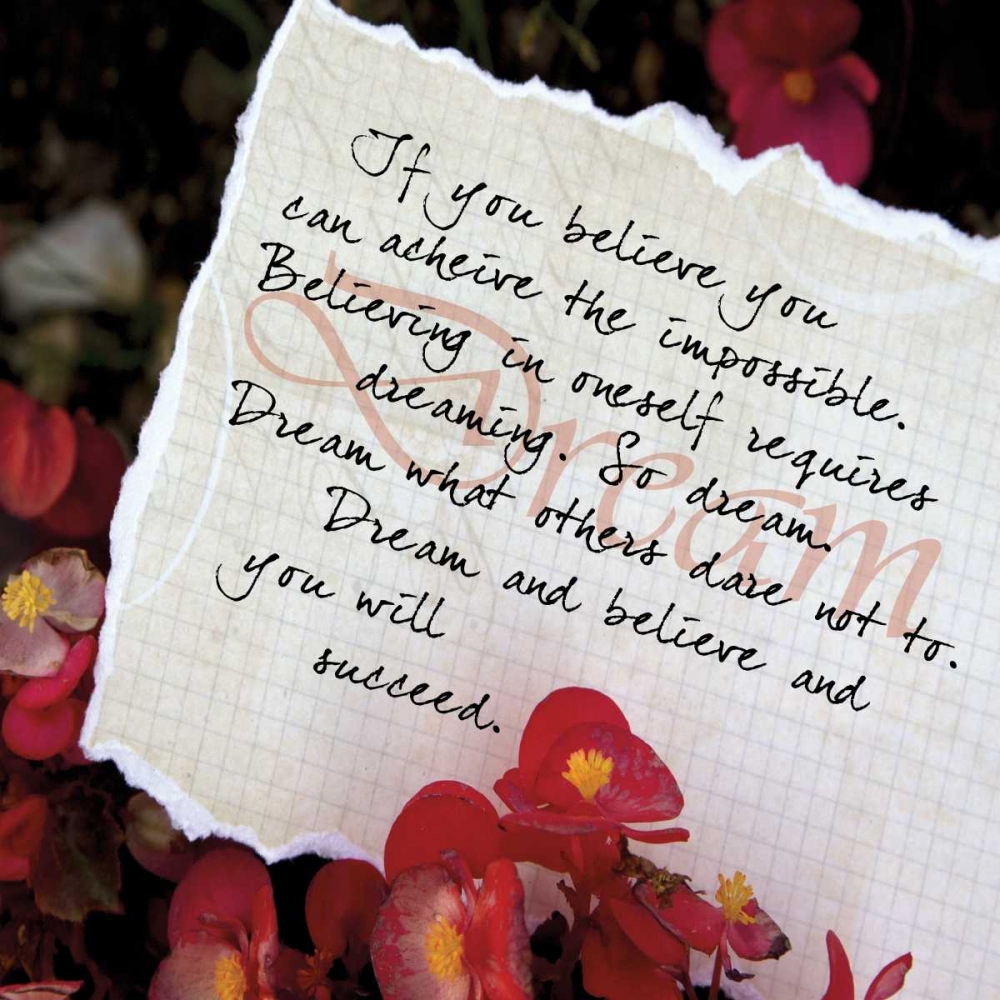 If you believe you
can acheive the impossible.
Believing in oneself requires
dreaming. So dream.
Dream what others dare not to.
Dream and believe and
you will
succeed.
Dream